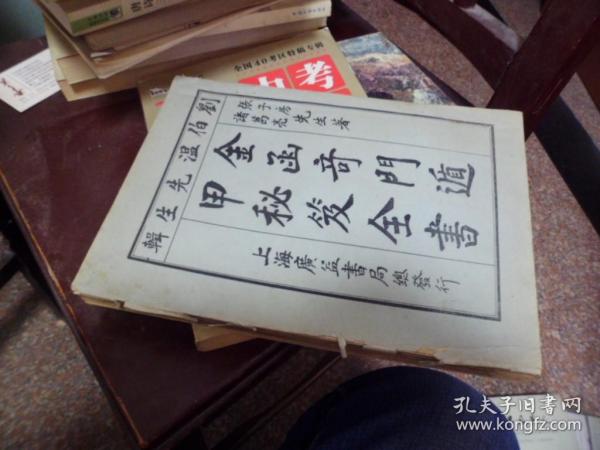 唐诗
全国40考区特稿专辑
考
張子房
諸葛亮
先生著
劉伯溫先生輯
金函奇門遁
甲秘笈全書
上海廣益書局總發行
孔夫子旧书网
www.kongfz.com